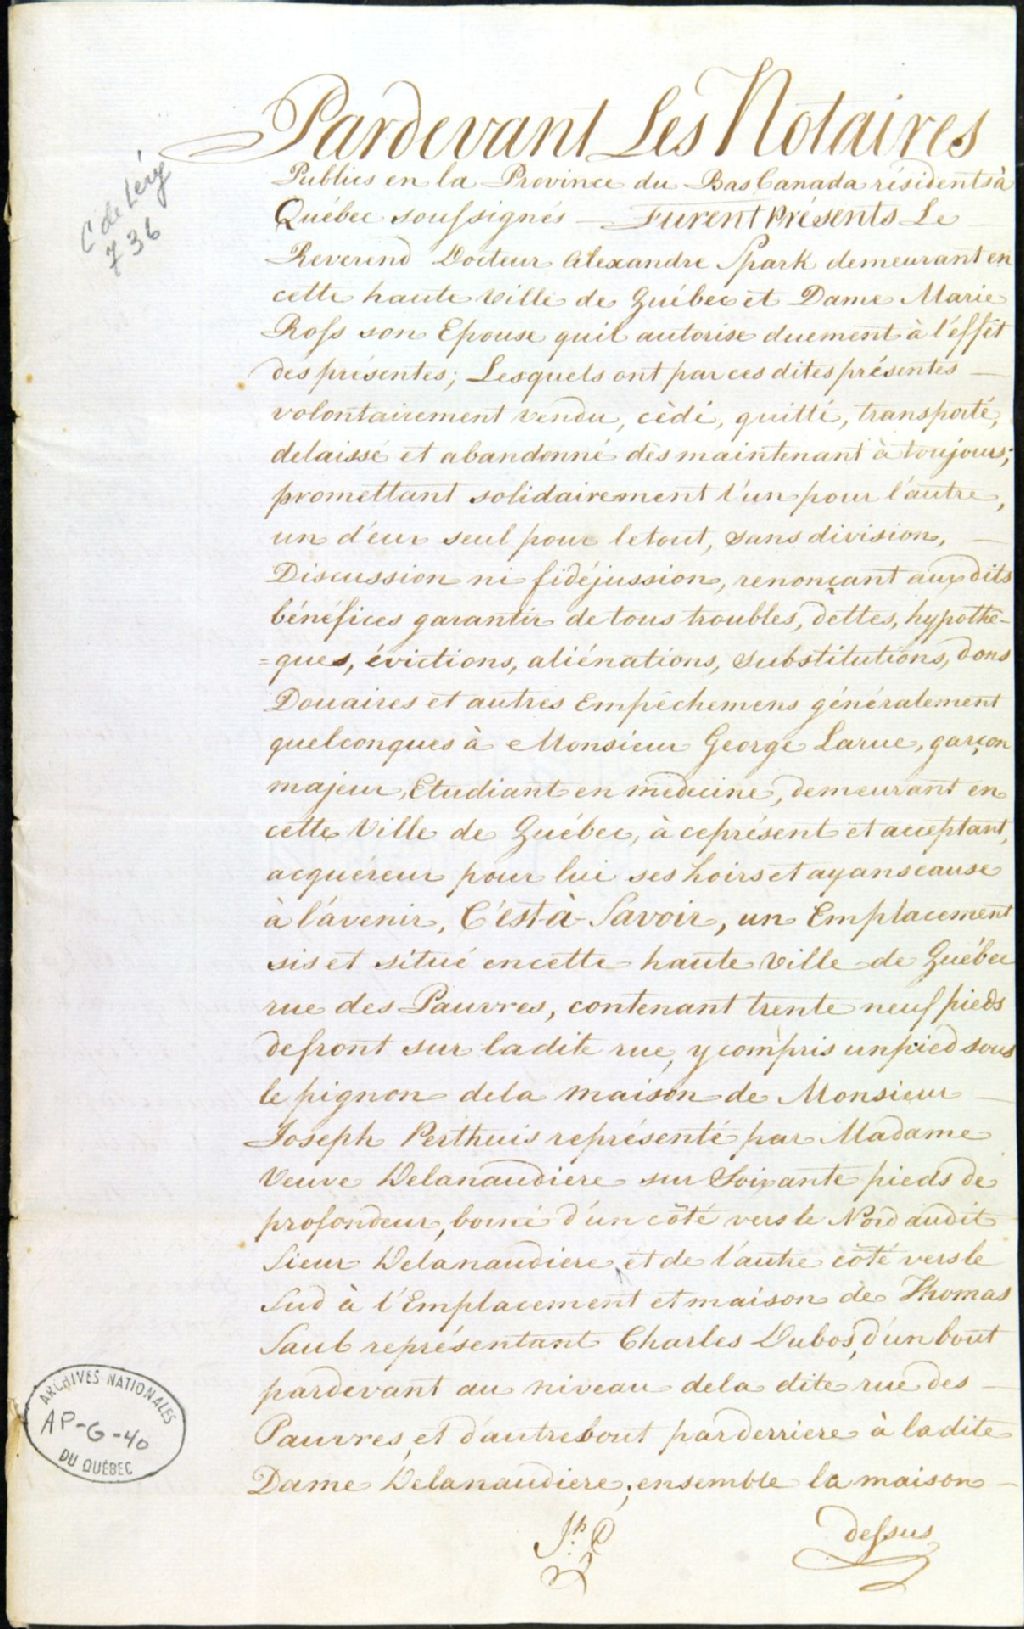 Pardevant Les Notaires
Publics en la Province du Bas Canada résidents à
Québec soussignés — Furent Présents Le
Reverend Docteur Alexandre Spark demeurant en
cette haute ville de Québec et Dame Marie
Ross son Epouse quil autorise duement à l'effet
des présentes; Lesquels ont par ces dites présentes —
volontairement vendu, cèdé, quitté, transporté,
delaissé et abandonné dès maintenant à toujours;
promettant solidairement l'un pour l'autre,
un d'eux seul pour letout, sans division, —
Discussion ni fidéjussion, renonçant aux dits
bénéfices garantir de tous troubles, dettes, hypothè-
=ques, évictions, aliénations, substitutions, dons
Douaires et autres Empêchemens généralement
quelconques à Monsieur George Larue, garçon
majeur, Etudiant en medecine, demeurant en
cette Ville de Québec, à ceprésent et acceptant,
acquéreur pour lui ses hoirs et ayans cause
à l'avenir, C'est-à-Savoir, un Emplacement
sis et situé encette haute ville de Québec
rue des Pauvres, contenant trente neuf pieds
defront sur ladite rue, y compris unpied sous
le pignon dela maison de Monsieur —
Joseph Perthuis représenté par Madame
Veuve Delanaudiere sur Soixante pieds de
profondeur, borné d'un côté vers le Nord audit
Sieur Delanaudiere et de l'autre côté vers le
Sud à l'Emplacement et maison de Thomas
Saul représentant Charles Dubos, d'un bout
pardevant au niveau dela dite rue des —
Pauvres, et d'autrebout parderriere à ladite
Dame Delanaudiere; ensemble la maison —
dessus
C de Léry
736
ARCHIVES NATIONALES
AP-G-40
DU QUÉBEC